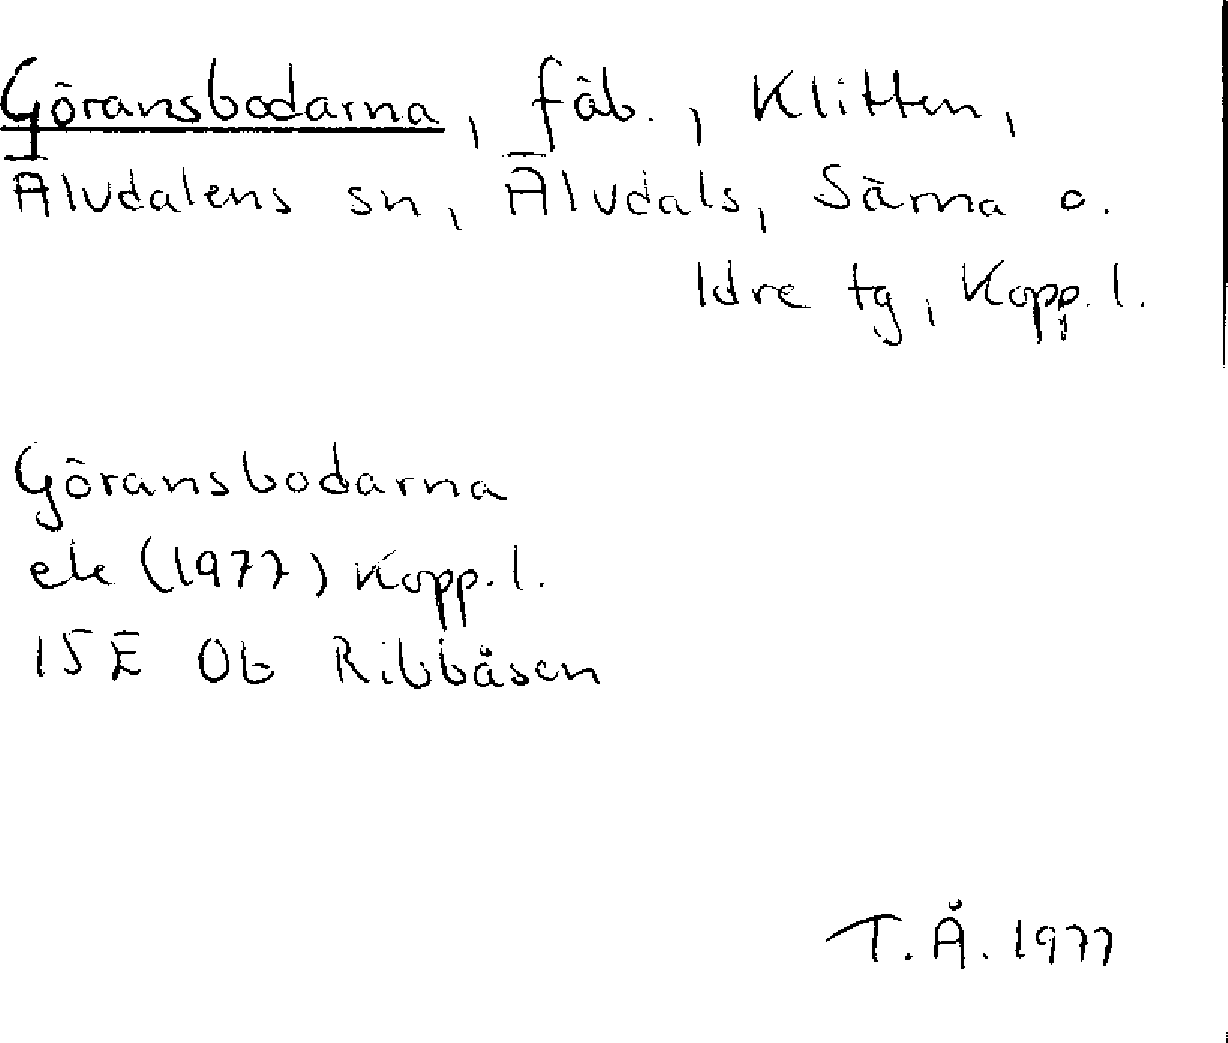 Göransbodarna, fäb., Klitten,
Älvdalens sn, Älvdals, Särna o.
Idre tg, Kopp. l.
Göransbodarna
ek (1977) Kopp. l.
15E 0b Ribbåsen
T.Å. 1977